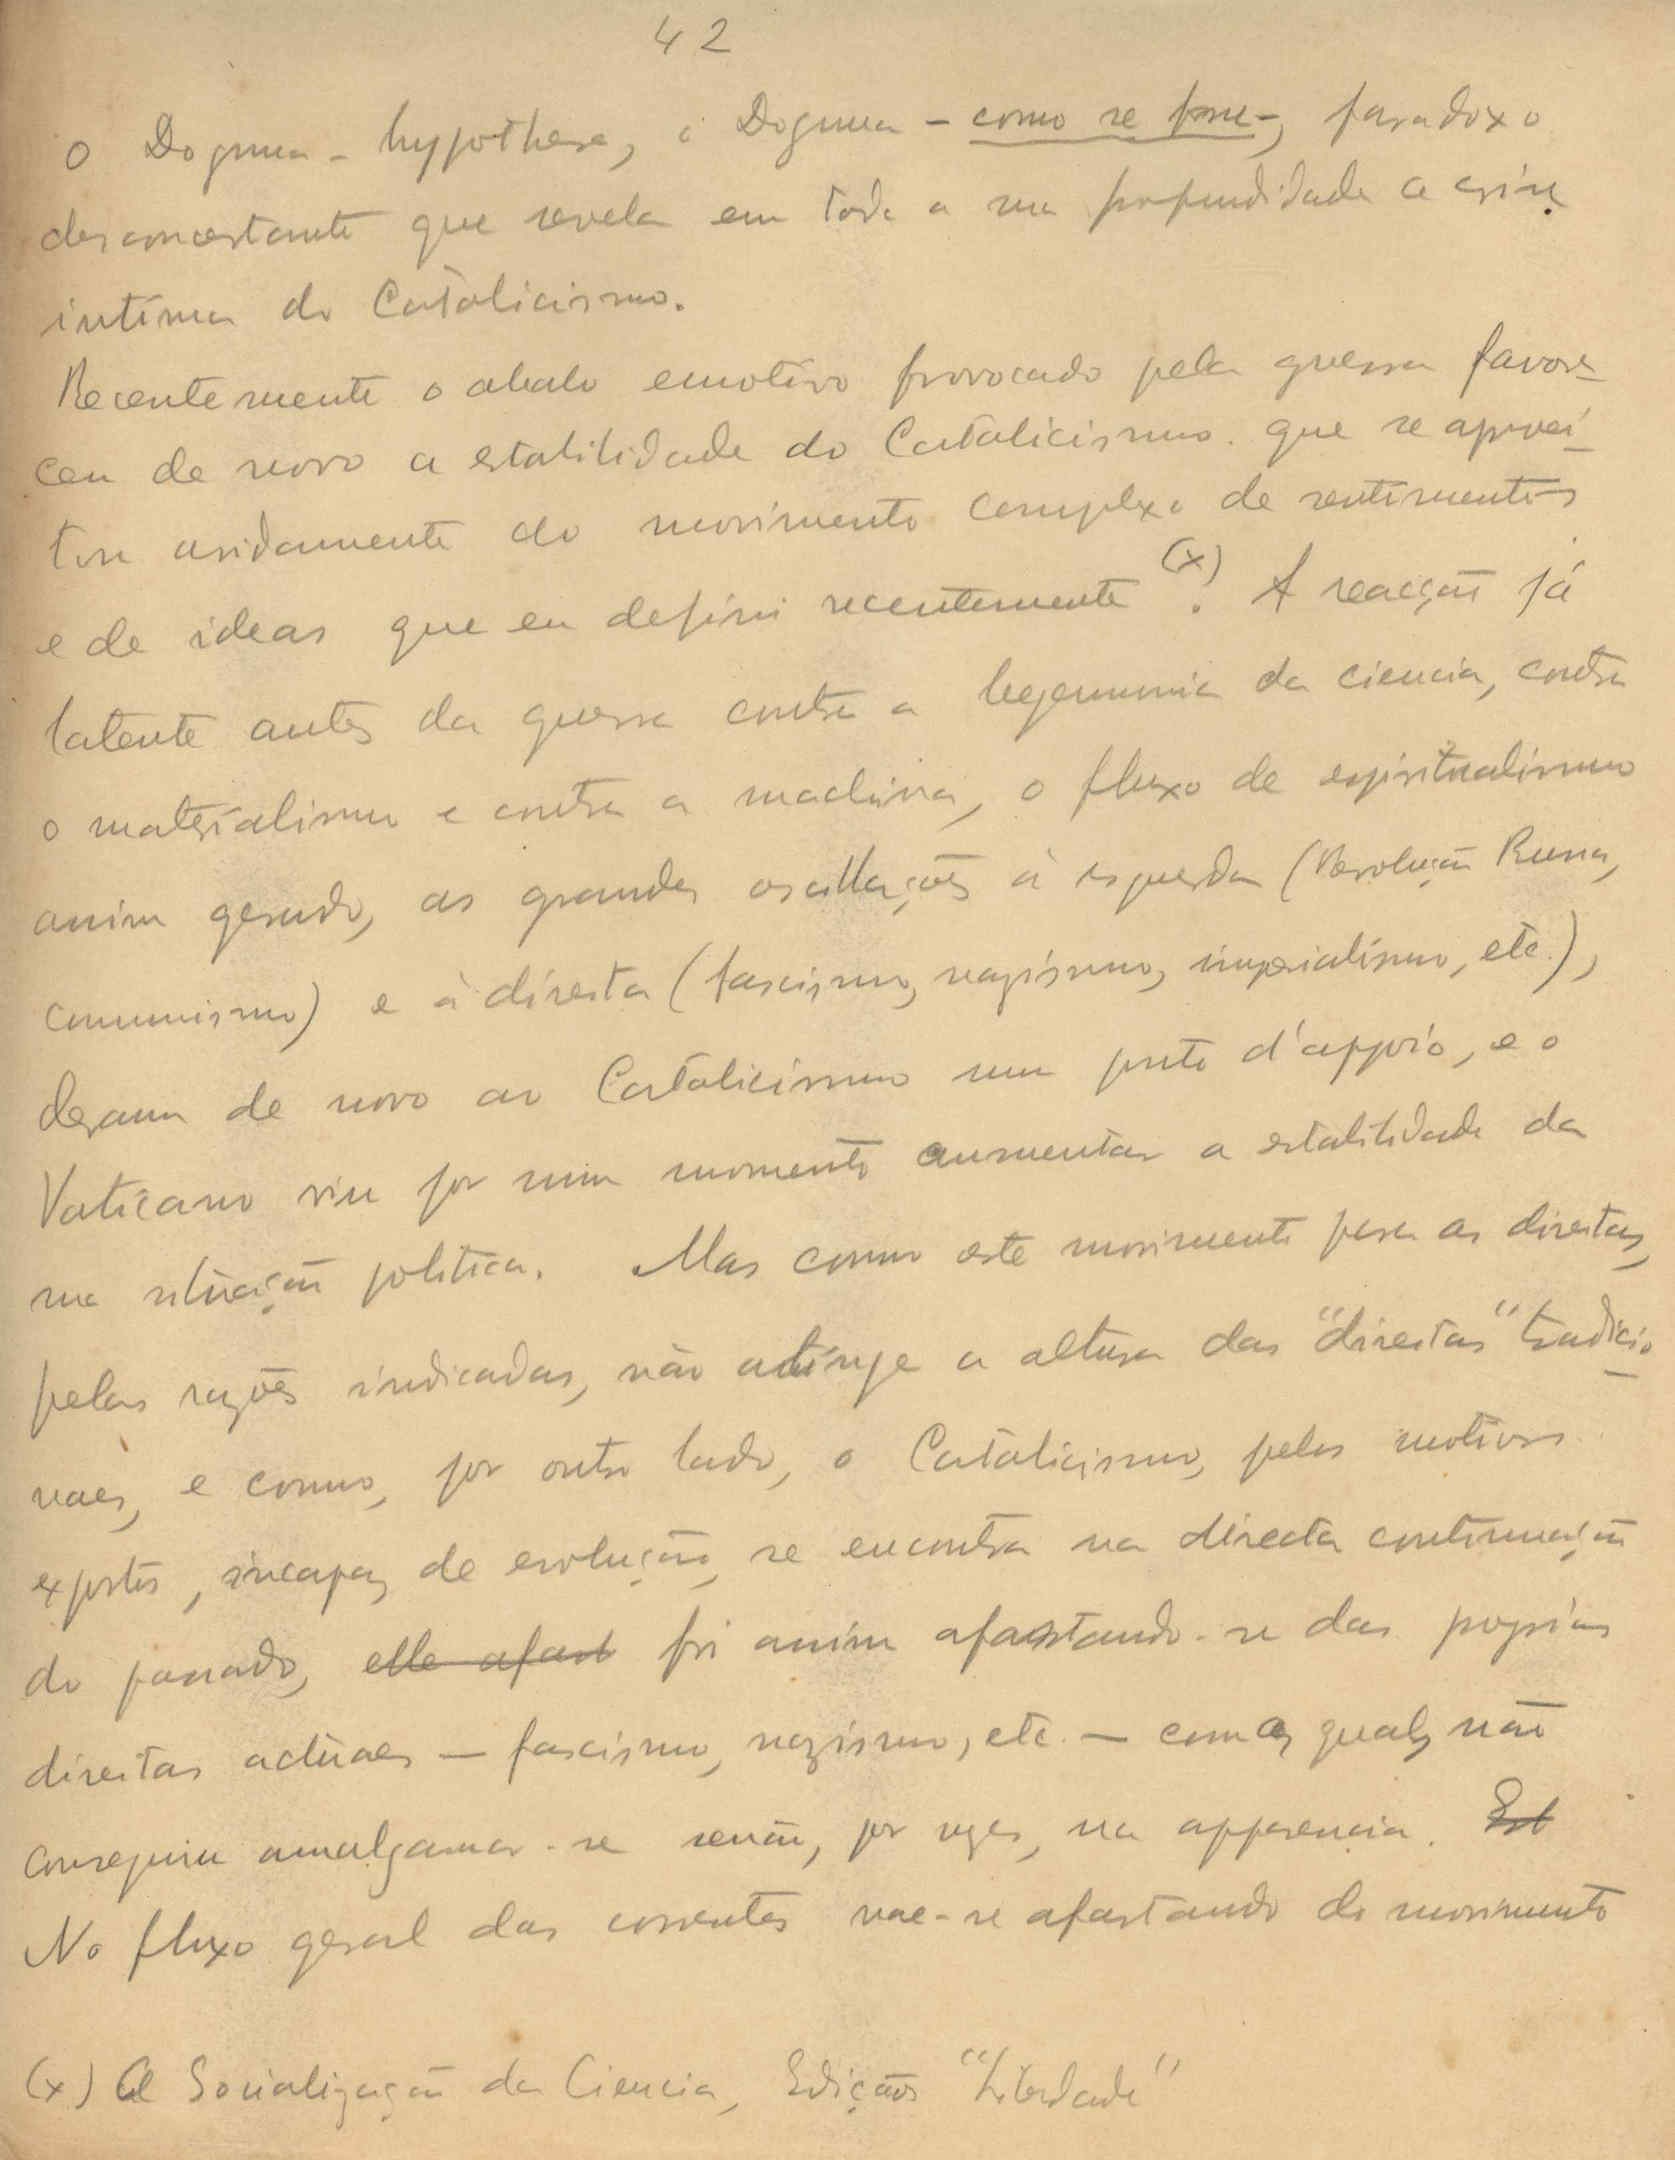 42
o Dogma-hypothese, o Dogma - como se fosse -, paradoxo
desconcertante que revela em toda a sua profundidade a crise
intima do Catolicismo.
Recentemente o abalo emotivo provocado pela guerra favore-
ceu de novo a estabilidade do Catolicismo que se aprovei-
tou avidamente do movimento complexo de sentimentos
e de ideas que eu defini recentemente (x). A reacção já
latente antes da guerra contra a hegemonia da ciencia, contra
o materialismo e contra a machina, o fluxo de espiritualismo
assim gerado, as grandes oscillações à esquerda (Revolução Russa,
comunismo) e à direita (fascismo, nazismo, imperialismo, etc.),
deram de novo ao Catolicismo um ponto d'appoio, e o
Vaticano viu por um momento aumentar a estabilidade da
sua situação politica. Mas como este movimento para as direitas,
pelas razões indicadas, não atinge a altura das "direitas" tradicio-
naes, e como, por outro lado, o Catolicismo, pelos motivos
expostos, incapaz de evolução, se encontra na directa continuação
do passado, elle afast foi assim afastando-se das proprias
direitas actuaes — fascismo, nazismo, etc. — com as quaes não
conseguiu amalgamar-se senão, por vezes, na apparencia. Est
No fluxo geral das correntes vae-se afastando do movimento
(x) A Socialização da Ciencia, Edição "Liberdade"